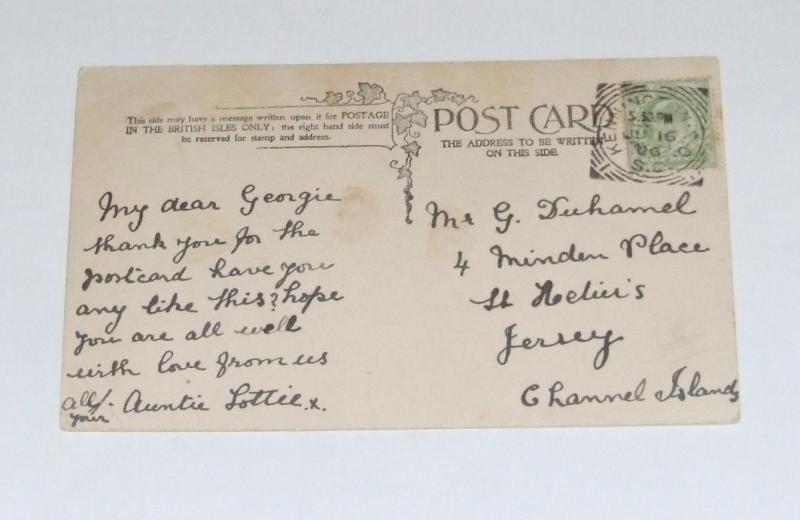 This side may have a message written upon it for POSTAGE
IN THE BRITISH ISLES ONLY: the right hand side must
be reserved for stamp and address.
POST CARD
THE ADDRESS TO BE WRITTEN
ON THIS SIDE.
5.30 PM
16
06
S.E.
My dear Georgie
thank you for the
postcard have you
any like this? hope
you are all well
with love from us
all/. Auntie Lottie. x.
your
Mr G. Duhamel
4 Minden Place
St Helier's
Jersey
Channel Islands